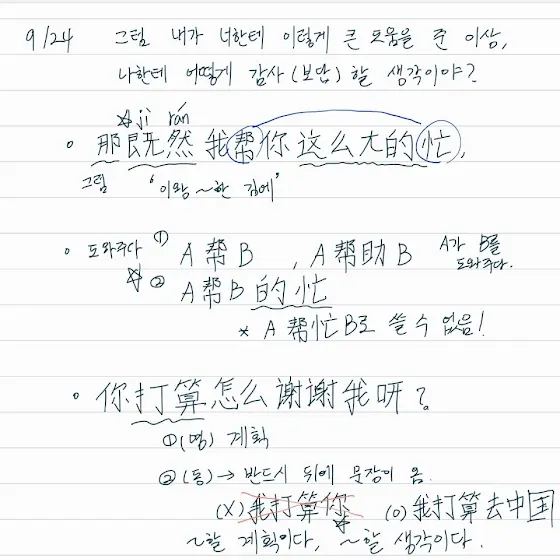 9/24 그럼 내가 너한테 이렇게 큰 도움을 준 이상,
나한테 어떻게 감사(보답) 할 생각이야?
☆jì rán
• 那既然我帮你这么大的忙,
그럼 "이왕 ~한 김에"
• 도와주다 ① A帮B , A帮助B A가 B를 도와주다.
☆② A帮B的忙
* A 帮忙B로 쓸 수 없음!
• 你打算怎么谢谢我呀?
①(명) 계획
②(동) → 반드시 뒤에 문장이 옴.
(X) 我打算你 (O) 我打算去中国
~할 계획이다, ~할 생각이다.